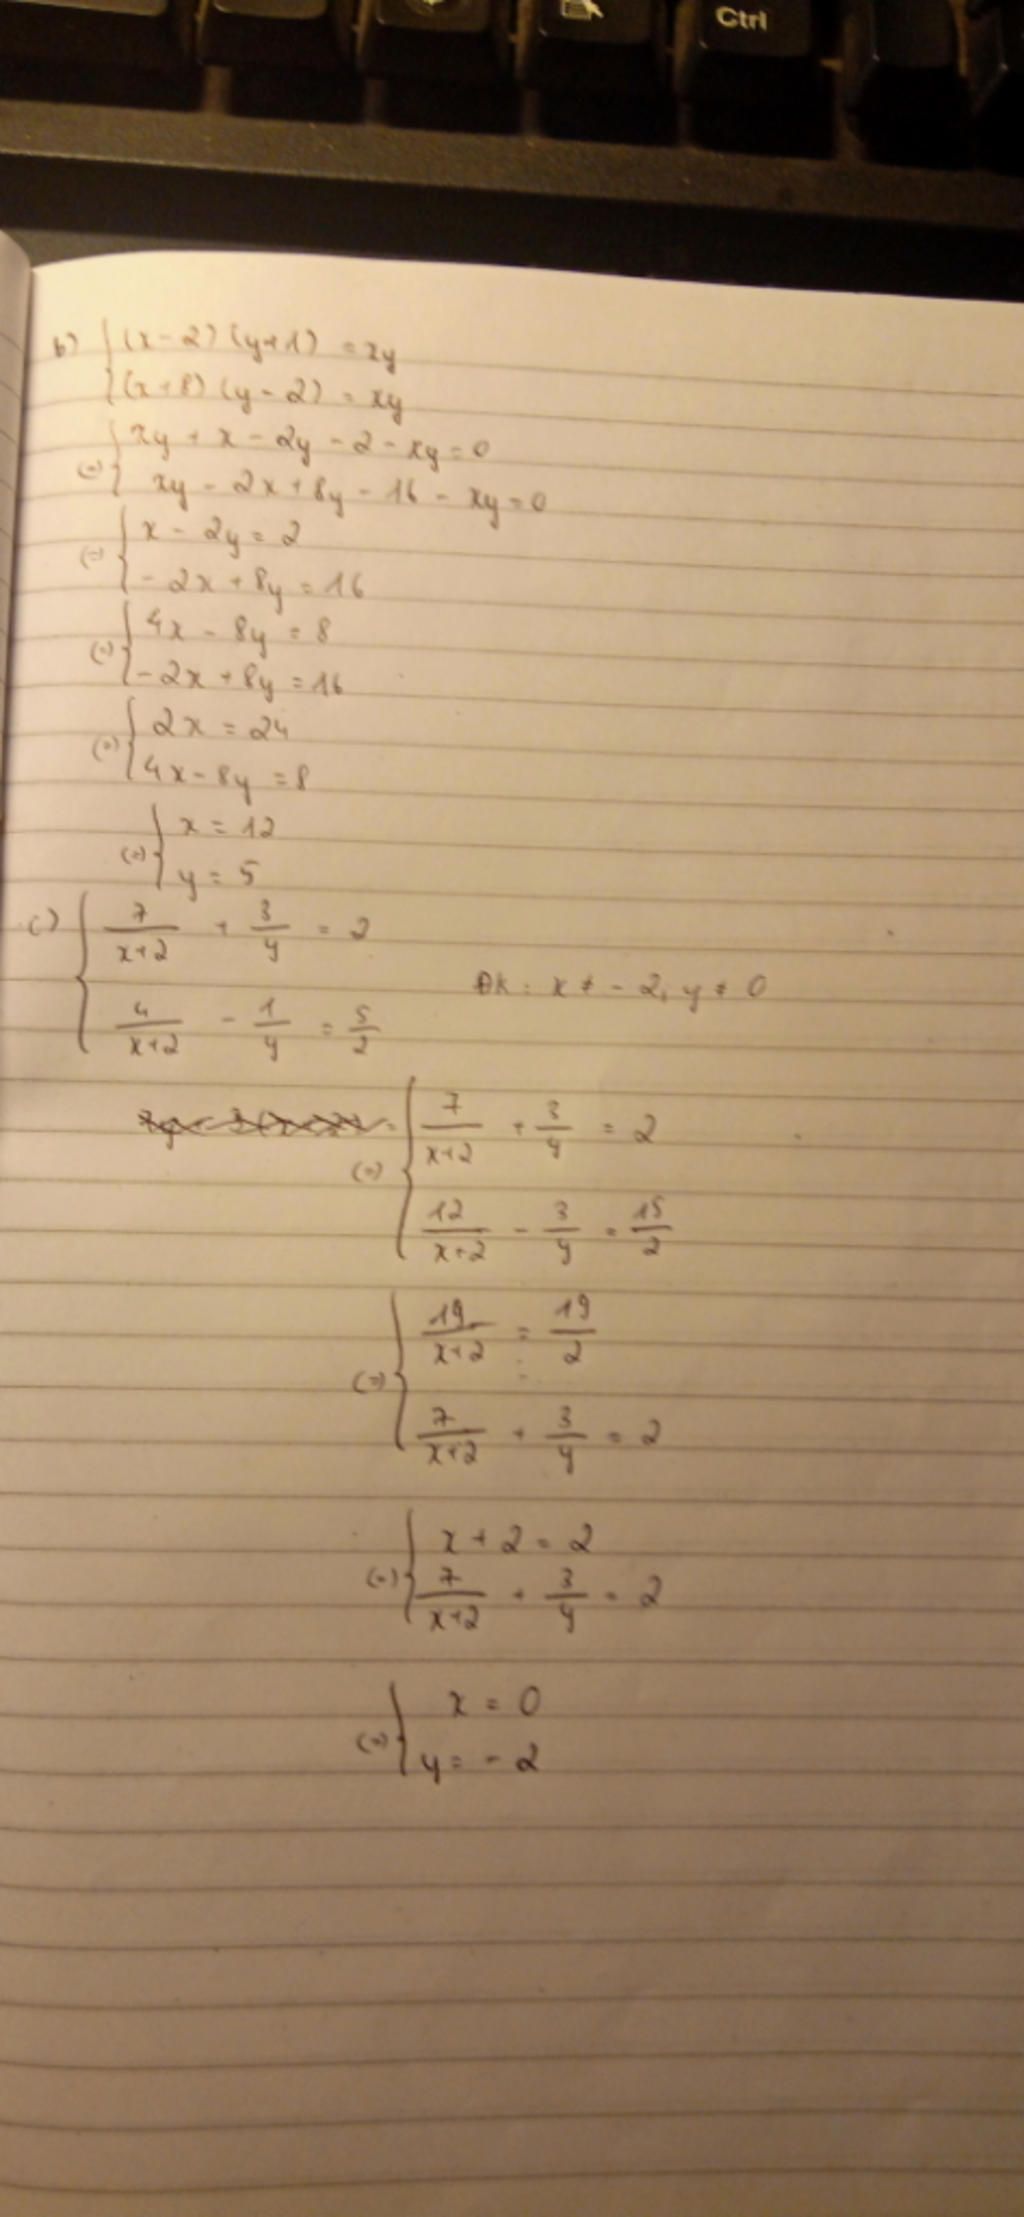 Ctrl
b) { (x - 2) (y + 1) = xy
{ (x + 8) (y - 2) = xy
(=) { xy + x - 2y - 2 - xy = 0
{ xy - 2x + 8y - 16 - xy = 0
(=) { x - 2y = 2
{ - 2x + 8y = 16
(=) { 4x - 8y = 8
{ - 2x + 8y = 16
(=) { 2x = 24
{ 4x - 8y = 8
(=) { x = 12
{ y = 5
c) { 7/(x+2) + 3/y = 2
ĐK : x ≠ - 2, y ≠ 0
{ 4/(x+2) - 1/y = 5/2
(=) { 7/(x+2) + 3/y = 2
{ 12/(x+2) - 3/y = 15/2
(=) { 19/(x+2) = 19/2
{ 7/(x+2) + 3/y = 2
(=) { x + 2 = 2
{ 7/(x+2) + 3/y = 2
(=) { x = 0
{ y = - 2